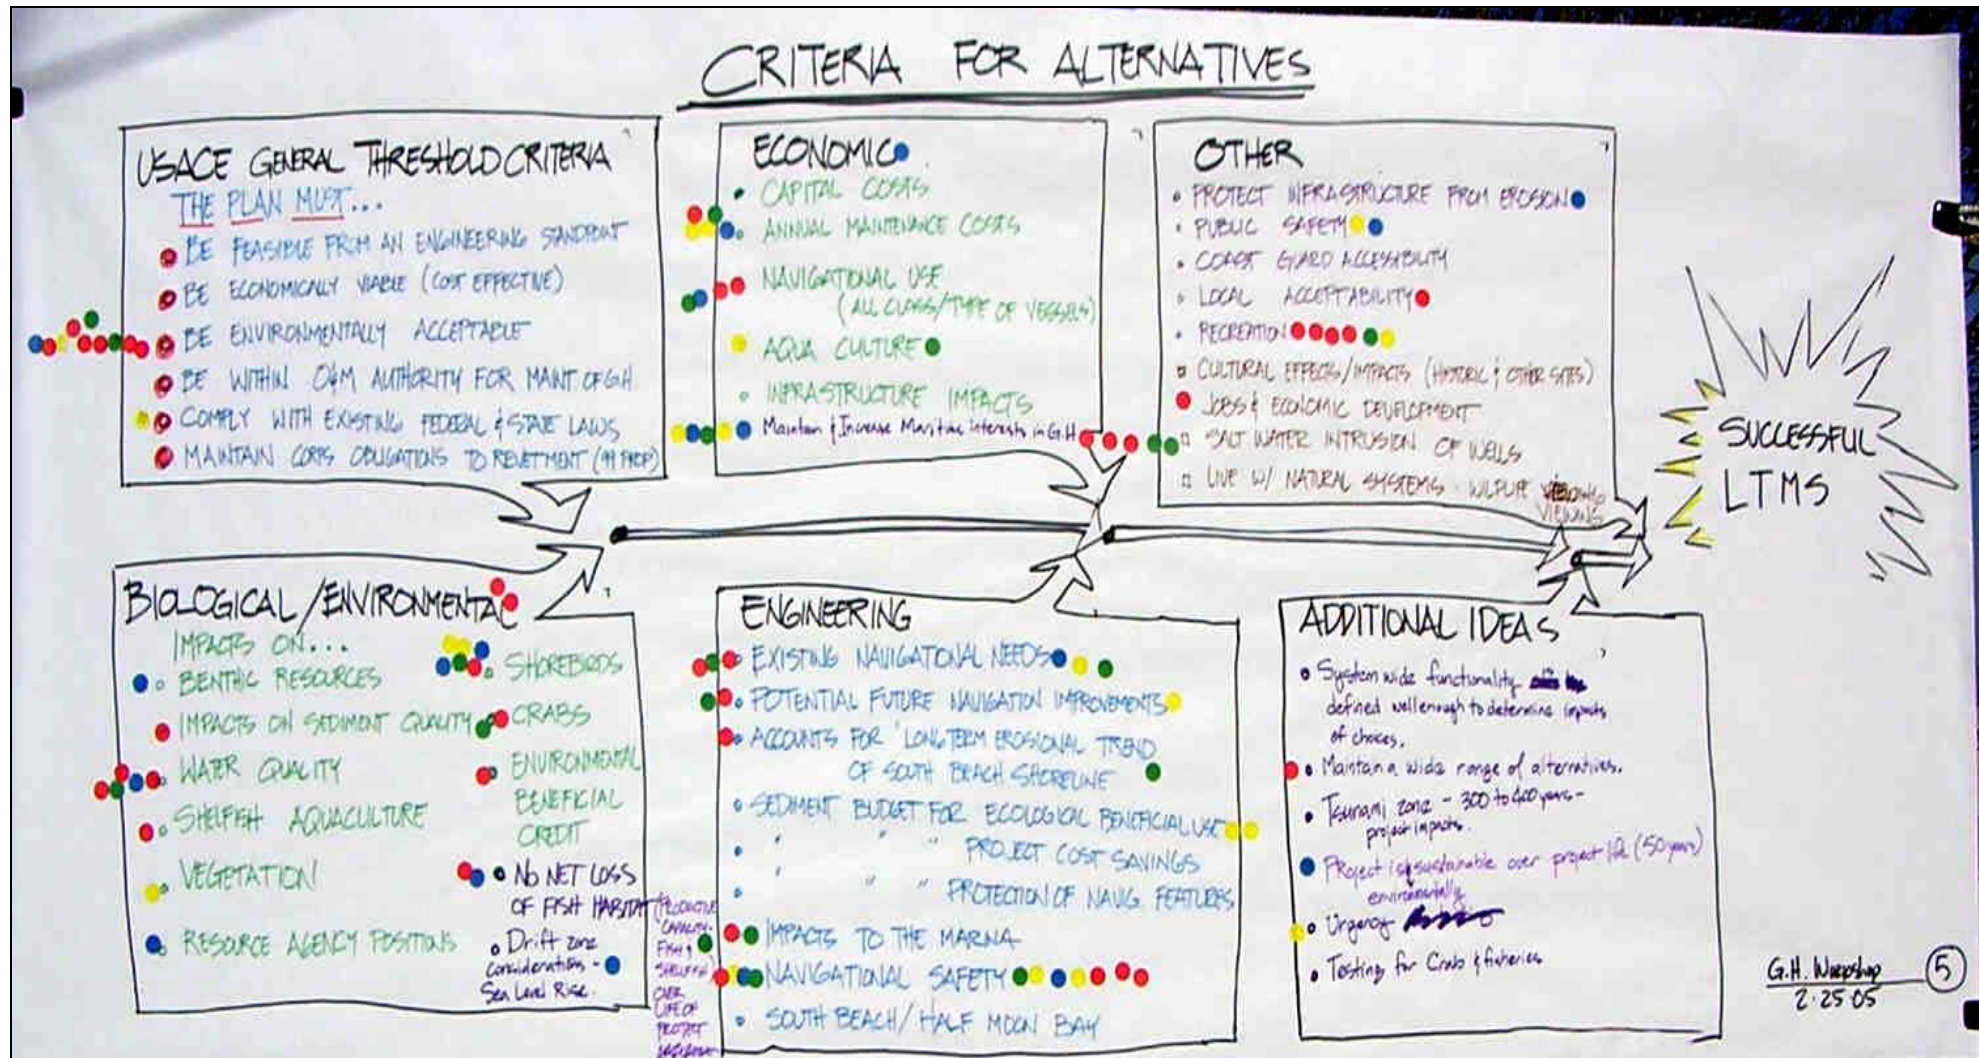 CRITERIA FOR ALTERNATIVES
USACE GENERAL THRESHOLD CRITERIA
THE PLAN MUST...
BE FEASIBLE FROM AN ENGINEERING STANDPOINT
BE ECONOMICALLY VIABLE (COST EFFECTIVE)
BE ENVIRONMENTALLY ACCEPTABLE
BE WITHIN O&M AUTHORITY FOR MAINT OF G.H
COMPLY WITH EXISTING FEDERAL & STATE LAWS
MAINTAIN CORPS OBLIGATIONS TO REVETMENT (99 PROP)
ECONOMIC
CAPITAL COSTS
ANNUAL MAINTENANCE COSTS
NAVIGATIONAL USE
(ALL CLASS/TYPE OF VESSELS)
AQUA CULTURE
INFRASTRUCTURE IMPACTS
Maintain & Increase Maritime interests in G.H
OTHER
PROTECT INFRASTRUCTURE FROM EROSION
PUBLIC SAFETY
COAST GUARD ACCESSIBILITY
LOCAL ACCEPTABILITY
RECREATION
CULTURAL EFFECTS/IMPACTS (HISTORIC & OTHER SITES)
JOBS & ECONOMIC DEVELOPMENT
SALT WATER INTRUSION OF WELLS
LIVE W/ NATURAL SYSTEMS - WILDLIFE
VIEWING
SUCCESSFUL
LTMS
BIOLOGICAL/ENVIRONMENTAL
IMPACTS ON...
BENTHIC RESOURCES
IMPACTS ON SEDIMENT QUALITY
WATER QUALITY
SHELFISH AQUACULTURE
VEGETATION
RESOURCE AGENCY POSITIONS
SHOREBIRDS
CRABS
ENVIRONMENTAL
BENEFICIAL
CREDIT
NO NET LOSS
OF FISH HABITAT
(PRODUCTIVE
CAPACITY-
FISH &
SHELLFISH)
OVER
LIFE OF
PROJECT
Drift zone
considerations -
Sea Level Rise.
ENGINEERING
EXISTING NAVIGATIONAL NEEDS
POTENTIAL FUTURE NAVIGATION IMPROVEMENTS
ACCOUNTS FOR LONG TERM EROSIONAL TREND
OF SOUTH BEACH SHORELINE
SEDIMENT BUDGET FOR ECOLOGICAL BENEFICIAL USE
" " " PROJECT COST SAVINGS
" " " PROTECTION OF NAVIG. FEATURES
IMPACTS TO THE MARINA
NAVIGATIONAL SAFETY
SOUTH BEACH/HALF MOON BAY
ADDITIONAL IDEAS
System wide functionality
defined well enough to determine impacts
of choices.
Maintain a wide range of alternatives.
Tsunami zone - 300 to 400 years -
project impacts.
Project is sustainable over project life (50 years)
environmentally
Urgency
Testing for Crab & fisheries
G.H. Workshop
2.25 05
5